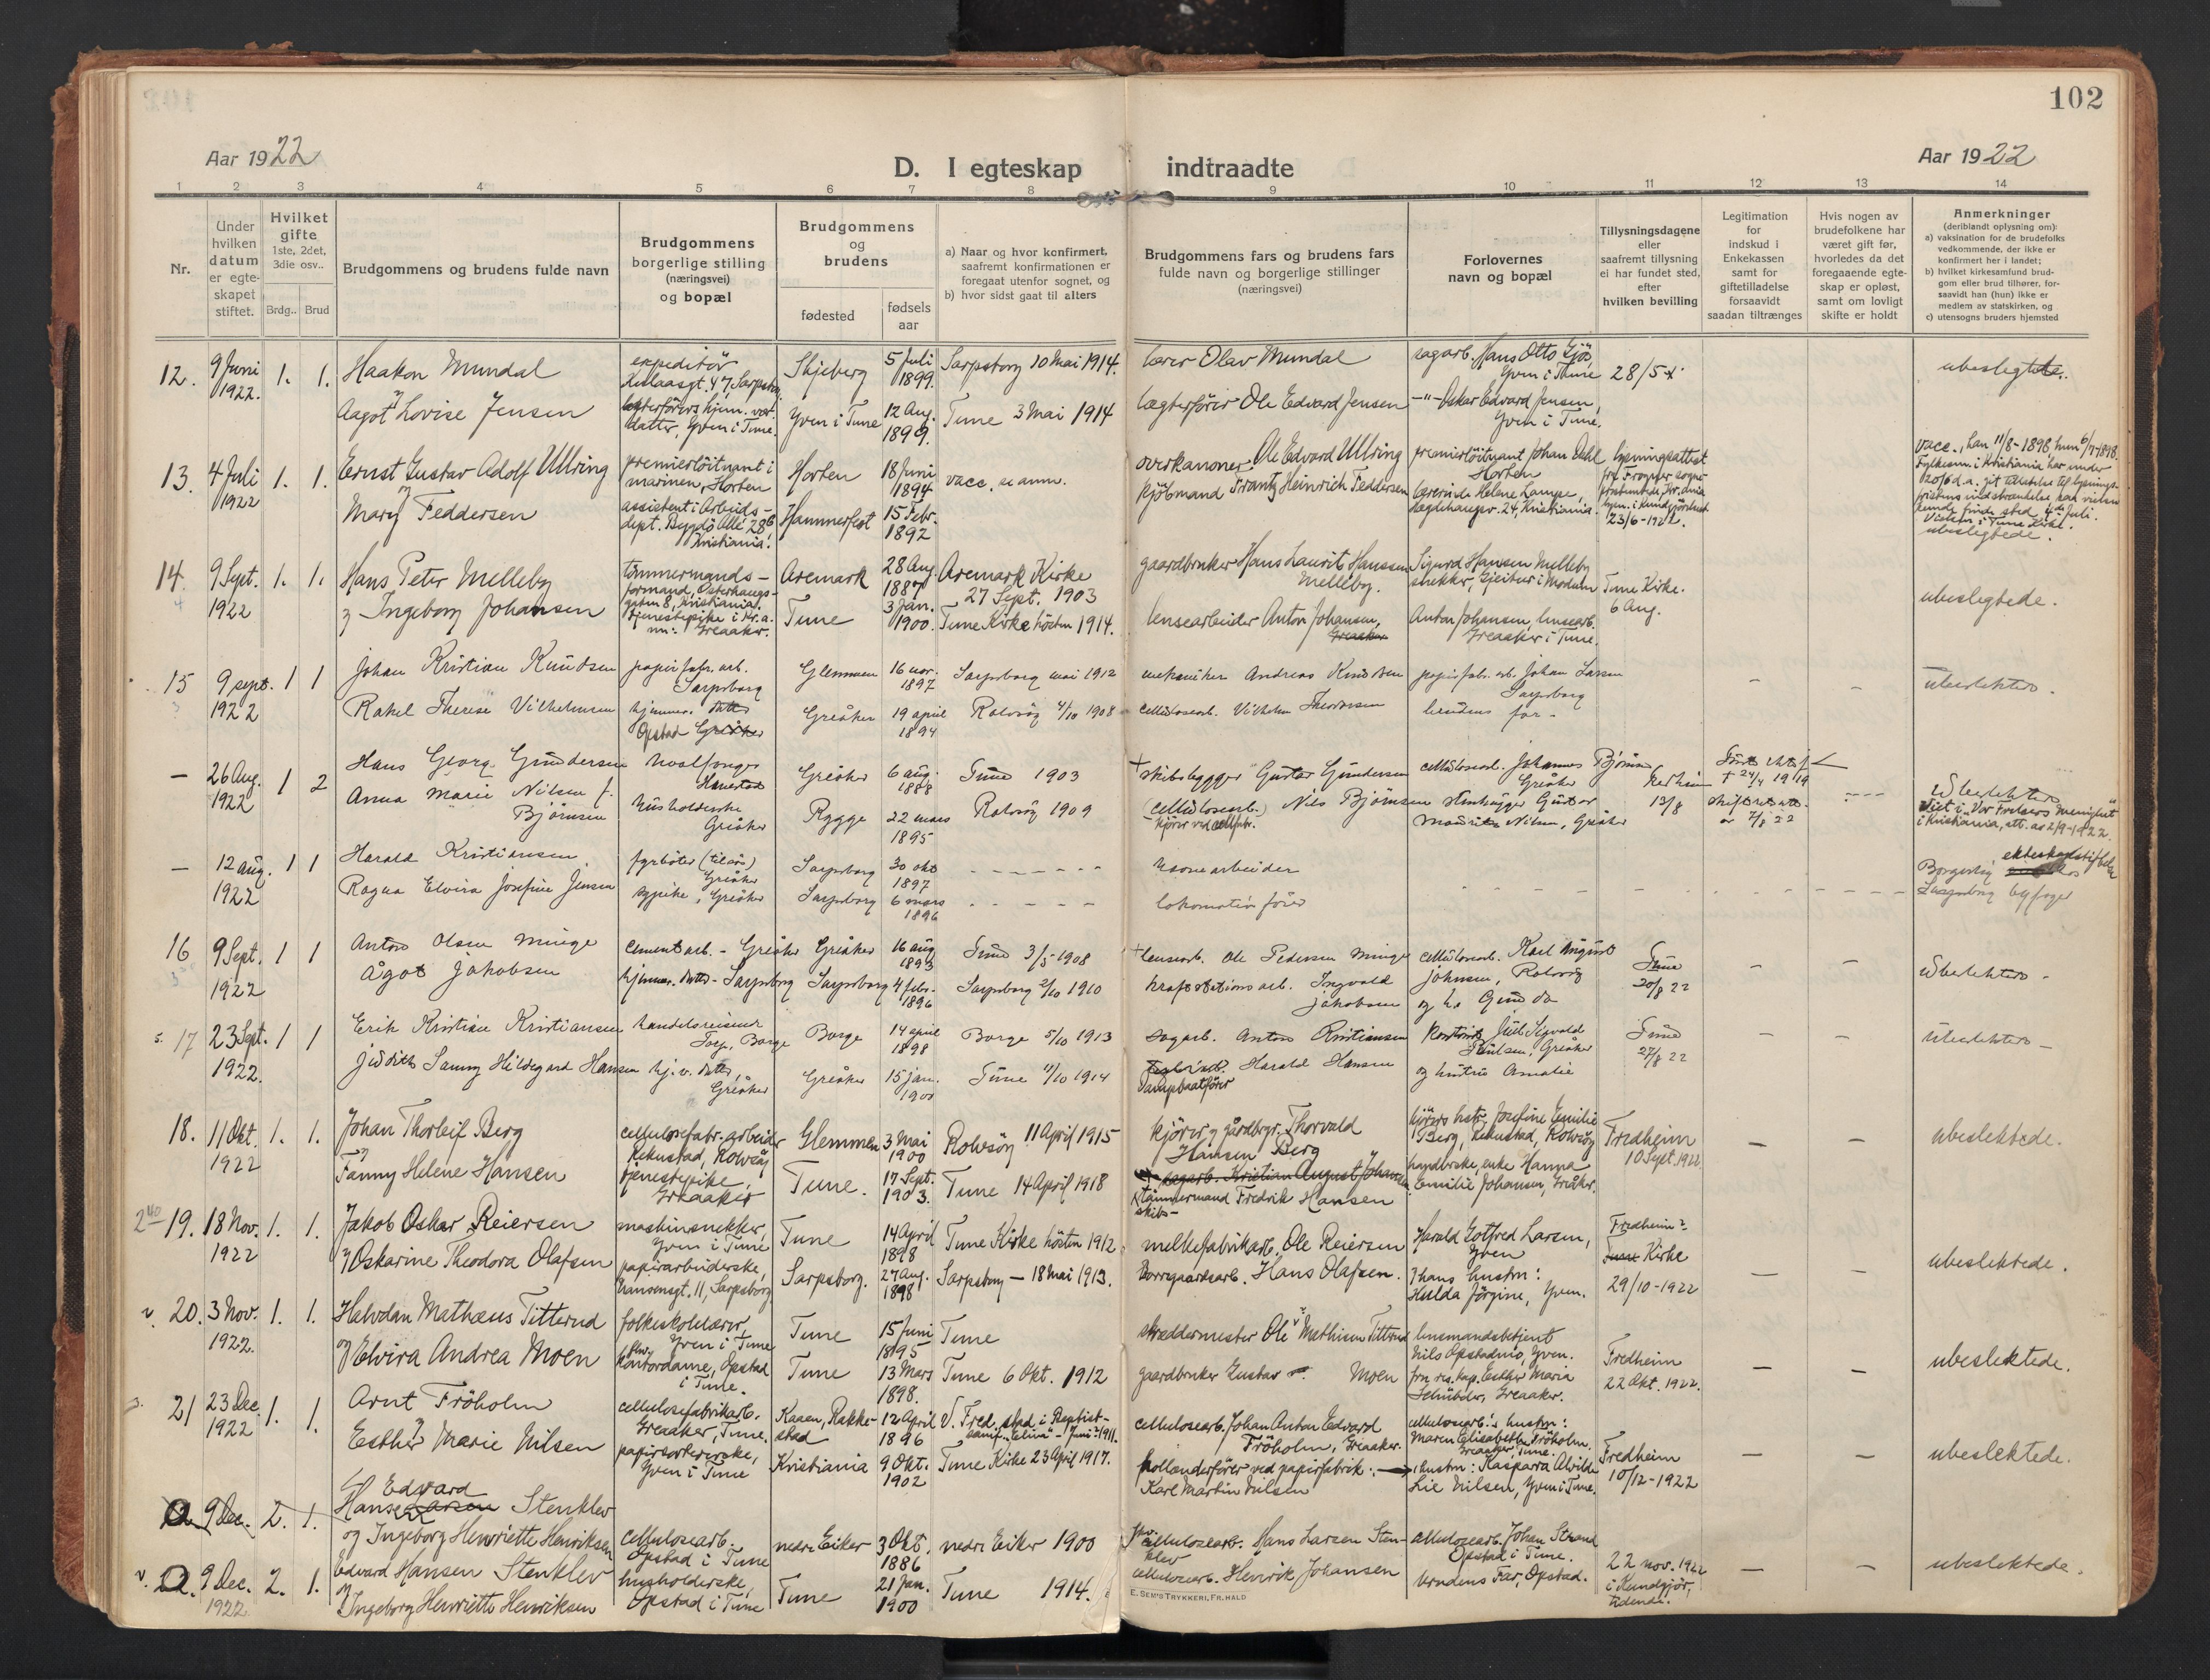 102
Aar 1922
D. I egteskap indtraadte
Aar 1922
1 2 3 4 5 6 7 8 9 10 11 12 13 14
Nr.
Under hvilken datum er egteskapet stiftet.
Hvilket gifte
1ste, 2det, 3die osv..
Brdg.. Brud
Brudgommens og brudens fulde navn
Brudgommens borgerlige stilling (næringsvei) og bopæl
Brudgommens og brudens
fødested
fødselsaar
a) Naar og hvor konfirmert, saafremt konfirmationen er foregaat utenfor sognet, og
b) hvor sidst gaat til alters
Brudgommens fars og brudens fars fulde navn og borgerlige stillinger (næringsvei)
Forlovernes navn og bopæl
Tillysningsdagene eller saafremt tillysning ei har fundet sted, efter hvilken bevilling
Legitimation for indskud i Enkekassen samt for giftetilladelse forsaavidt saadan tiltrænges
Hvis nogen av brudefolkene har været gift før, hvorledes da det foregaaende egteskap er opløst, samt om lovligt skifte er holdt
Anmerkninger
(deriblandt oplysning om):
a) vaksination for de brudefolks vedkommende, der ikke er konfirmert her i landet;
b) hvilket kirkesamfund brudgom eller brud tilhører, forsaavidt han (hun) ikke er medlem av statskirken, og
c) utensogns bruders hjemsted
12. 9 Juni 1922. 1. 1. Haakon Mundal
Skjeberg 5 Juli 1899. Sarpsborg 10 Mai 1914. lærer Olav Mundal
sagarb. Hans Otto Gjös, Yven i Tune 28/5 ubeslegtede.
og Aagot Lovise Jensen
datter, Yven i Tune. Yven i Tune 12 Aug. 1899. Tune 3 Mai 1914
lægterfører Ole Edvard Jensen -"- Oskar Edvard Jensen, Yven i Tune.
13. 4 Juli 1922 1. 1. Ernst Gustav Adolf Ullring
premierløitnant i marinen, Horten Horten 18 Juni 1894 vacc. se anm.
overkanoner Ole Edvard Ullring premierløitnant Johan Dahl Horten
og Mary Feddersen
assistent i Arbeidsdept. Bygdö Allé 28b Kristiania. Hammerfest 15 Febr. 1892
kjöbmand Frantz Heinrich Feddersen lærerinde Helene Lampe, Kristiania.
23/6-1922.
vacc., han 11/8-1898, hun 6/7-1898.
ubeslegtede.
14. 9 Sept. 1922 1. 1. Hans Peter Melleby
tömmermandsformand, Osterhausgaten 8, Kristiania. Aremark 28 Aug. 1887 Aremark Kirke 27 Sept. 1903
gaardbruker Hans Laurits Hanssen Melleby. Sigurd Hansen Melleby snekker, Gjeithus i Modum Tune Kirke. 6 Aug. ubeslegtede.
og Ingeborg Johansen
tjenestepike i Kr.a. Greaaker. Tune 3 Jan. 1900. Tune Kirke hösten 1914.
lensearbeider Anton Johansen, Greaaker Anton Johansen, lensearb. Greaaker i Tune.
15 9 sept. 1922 1 1 Johan Kristian Knudsen papirfabr. arb. Sarpsborg
Glemmen 16 nov. 1897 Sarpsborg mai 1912 mekaniker Andreas Knudsen
papirfabr. arb. Johan Larsen Sarpsborg – –
Rakel Therese Vilhelmsen hjemmev. datter Opstad Greåker
Greåker 19 april 1894 Rolvsøy 4/10 1908 cellulosearb. Vilhelm Theodorsen brudens far –
— 26 Aug. 1922 1 2 Hans Georg Gundersen hvalfanger
Greåker 6 aug. 1888 Tune 1903 † skibsbygger Gustav Gundersen cellulosearb. Johannes Björnsen Greåker
13/8 † 24/4 1919
Anna Marie Nilsen f. Björnsen husholderske Greåker
Rygge 22 mars 1895 Rolvsøy 1909 (cellulosearb.) Nils Björnsen
Nilsen, Greåker
Viet i Vor Frelsers Menighet i Kristiania, att. av 2/9-1922.
— 12 aug. 1922 1 1 Harald Kristiansen fyrböter (tilsjøs) Greåker
Sarpsborg 30 okt 1897 - - - - - -
Ragna Elvira Josefine Jensen sypike, Greåker
Sarpsborg 6 mars 1896 - - - - - lokomotivfører
Borgerlig ekteskapsstiftelse
Sarpsborg byfoged
16 9 Sept. 1922 1 1 Anton Olsen Minge cementarb. - Greåker Greåker 16 aug 1893 Tune 3/5 1908
† lensearb. Ole Pedersen Minge cellulosearb. Karl August Johnsen, Rolvsøy Tune 20/8 22 – –
Ågot Jakobsen hjemmev. datter - Sarpsborg Sarpsborg 4 febr. 1896 Sarpsborg 2/10 1910
kraftstationsarb. Ingvald Jakobsen
17 23 Sept. 1922. 1 1 Erik Kristian Kristiansen handelsreisende Torp, Borge
Borge 14 april 1898 Borge 5/10 1913 sagarb. Anton Kristiansen
Greåker Tune 27/8 22 – –
Judith Sanny Hildegard Hansen hj. v. datter, Greåker
Greåker 15 jan. 1900 Tune 11/10 1914 Harald Hansen
Dampbaatfører og hustru Amalie
18. 11 Okt. 1922 1. 1. Johan Thorleif Berg
cellulosefabr. arbeider Rekustad, Rolvsøy Glemmen 3 Mai 1900 Rolvsöy 11 April 1915
kjörer og gårdbrgr. Thorvald Hansen Berg kjörers hstr. Josefine Emilie Berg, Rekustad, Rolvsöy Fredheim 10 Sept. 1922 – – ubeslektede.
og Fanny Helene Hansen
tjenestepike, Greaaker Tune. 17 Sept. 1903. Tune 14 April 1918
sagarb. Kristian August Johansen
skibstömmermand Fredrik Hansen
enke Hanna Emilie Johansen, Greåker.
2 40 19. 18 Nov. 1922 1. 1. Jakob Oskar Reiersen
maskinsnekker, Yven i Tune Tune 14 April 1898 Tune Kirke hösten 1912
melkefabrikarb. Ole Reiersen Harald Gotfred Larsen, Yven Fredheim Tune Kirke 29/10-1922 – – ubeslektede.
og Oskarine Theodora Olafsen
papirarbeiderske, Hansensgt. 11, Sarpsborg Sarpsborg. 27 Aug. 1898 Sarpsborg – 18 Mai 1913.
Borregaardsarb. Hans Olafsen. og hans hustru: Hulda Jörgine, Yven.
v. 20. 3 Nov. 1922. 1. 1. Halvdan Mathæus Titterud
folkeskolelærer, Yven i Tune Tune 15 Juni 1895 Tune
skræddermester Ole Mathisen Titterud lensmandsbetjent Nils Opstadmo, Yven. Fredheim 22 Okt. 1922. – – ubeslektede.
og Elvira Andrea Moen
kontordame, Opstad i Tune. Tune 13 Mars 1898. Tune 6 Okt. 1912
gaardbruker Gustav Moen fru res. kap. Esther Maria Schübeler, Greaaker.
21 23 Dec. 1922 1. 1. Arnt Fröholm
cellulosefabrikarb. Greaaker, Tune. Kaaen, Rakkestad 12 April 1896 V. Fred.stad i Baptistsamf. "Elim" - Juni 1911.
cellulosearb. Johan Anton Edvard Fröholm, Greaaker. cellulosearb.'s hustru: Maren Elisabeth Fröholm. Greaaker, Tune. Fredheim 10/12-1922 – – ubeslektede.
og Esther Marie Nilsen
papirsortererske, Yven i Tune Kristiania 9 Okt. 1902 Tune Kirke 23 April 1917.
hollænderfører ved papirfabrik. Karl Martin Nilsen hustru: Kaspara Alvilde Lie Nilsen, Yven i Tune.
9 Dec. 2. 1. Edvard Hansen Larsen Stenklev
og Ingeborg Henriette Henriksen
9 Dec. 1922 2. 1. Edvard Hansen Stenklev
cellulosearb. Opstad i Tune nedre Eiker 3 Okt. 1886 nedre Eiker 1900
cellulosearb. Hans Larsen Stenklev cellulosearb. Johan Strand Opstad i Tune. 22 nov. 1922 i Kundgjör. tidende. – – ubeslektede.
og Ingeborg Henriette Henriksen
husholderske, Opstad i Tune Tune 21 Jan. 1900 Tune 1914.
cellulosearb. Henrik Johansen brudens Far, Opstad.
E. SEM'S TRYKKERI, FR.HALD